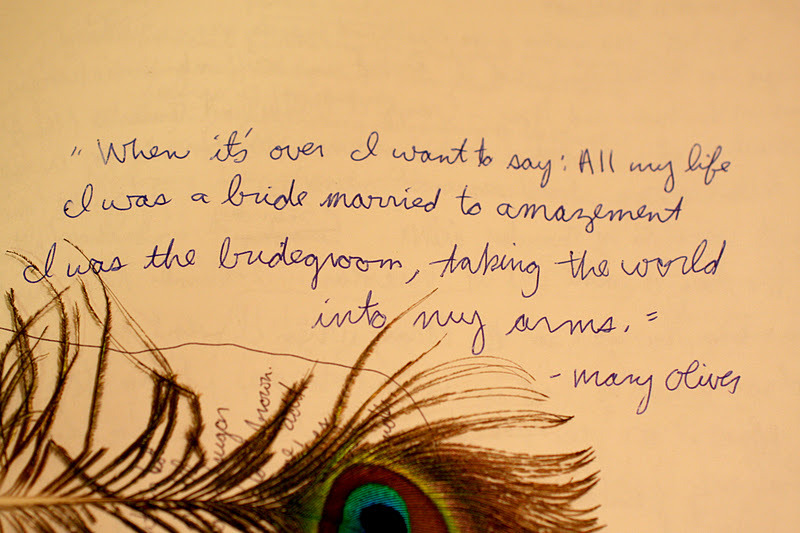 "When it's over I want to say: All my life
I was a bride married to amazement
I was the bridegroom, taking the world
into my arms."
- Mary Oliver
known.